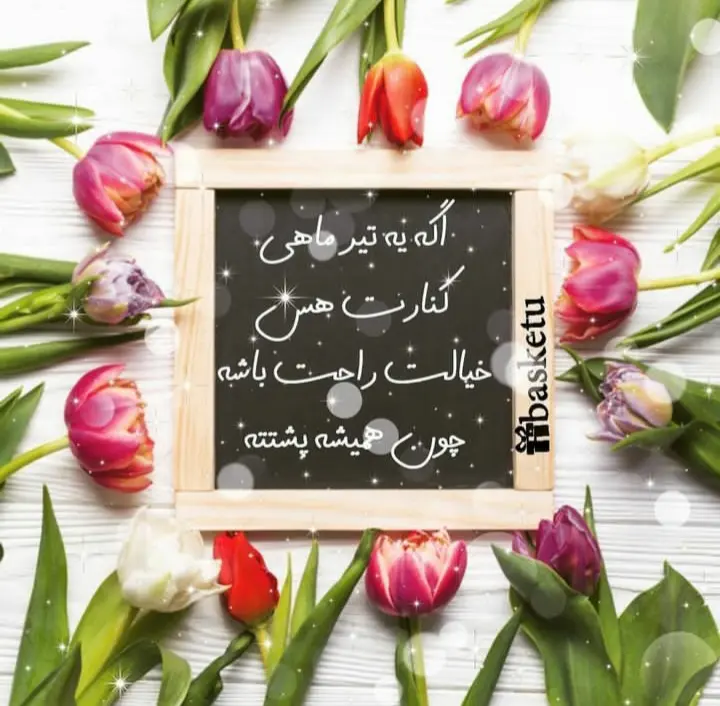 اگه یه تیر ماهی
کنارت هس
خیالت راحت باشه
چون همیشه پشتته
basketu